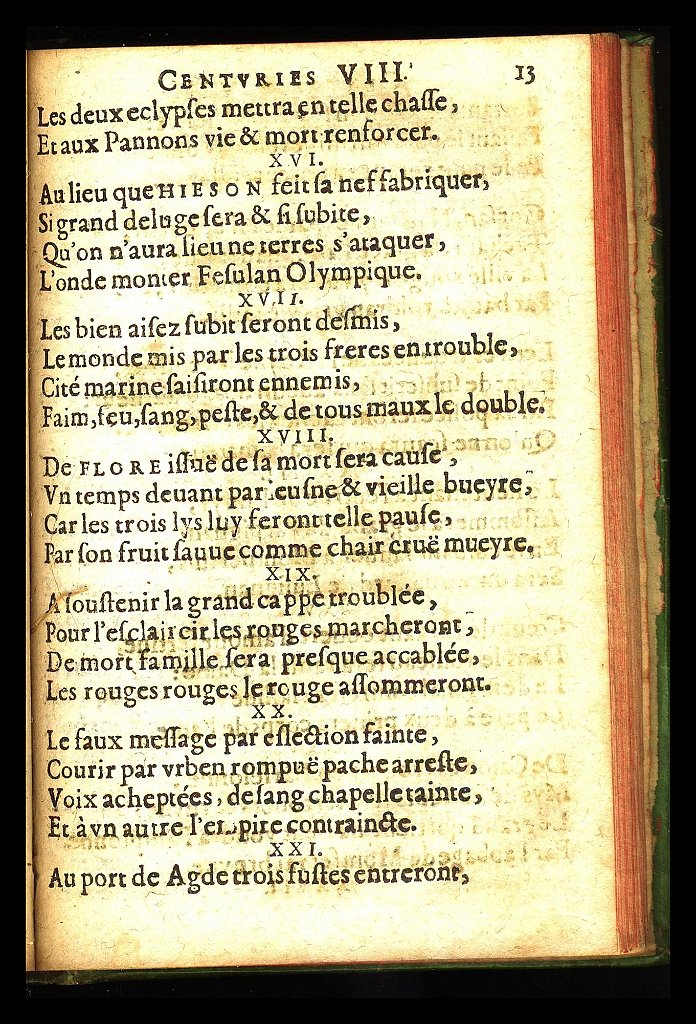 CENTVRIES VIII. 13
Les deux eclypses mettra en telle chasse,
Et aux Pannons vie & mort renforcer.
XVI.
Au lieu que HIESON feit sa nef fabriquer,
Si grand deluge sera & si subite,
Qu'on n'aura lieu ne terres s'ataquer,
L'onde monter Fesulan Olympique.
XVII.
Les bien aisez subit seront desmis,
Le monde mis par les trois freres en trouble,
Cité marine saisiront ennemis,
Faim, feu, sang, peste, & de tous maux le double.
XVIII.
De FLORE issuë de sa mort sera cause,
Vn temps deuant par ieusne & vieille bueyre,
Car les trois lys luy feront telle pause,
Par son fruit sauue comme chair cruë mueyre.
XIX.
A soustenir la grand cappe troublée,
Pour l'esclaircir les rouges marcheront,
De mort famille sera presque accablée,
Les rouges rouges le rouge assommeront.
XX.
Le faux message par eslection fainte,
Courir par vrben rompuë pache arreste,
Voix acheptées, de sang chapelle tainte,
Et à vn autre l'empire contraincte.
XXI.
Au port de Agde trois fustes entreront,